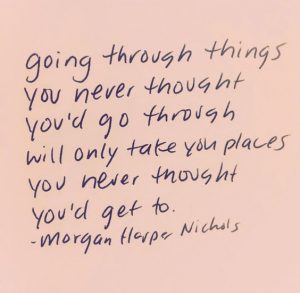 going through things
you never thought
you'd go through
will only take you places
you never thought
you'd get to.
-morgan Harper Nichols